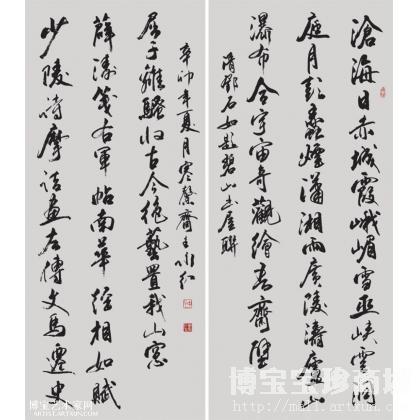 滄海日赤城霞峨嵋雪巫峡雲洞
庭月彭蠡煙瀟湘雨廣陵濤廬山
瀑布合宇宙奇觀繪吾齋壁
清鄧石如題碧山書屋聯
少陵詩摩詰畫左傳文馬遷史
薛濤箋右軍帖南華經相如賦
屈子離騷收古今絕藝置我山窗
辛卯年夏月寒馨齋主
博宝艺术家网
博宝宝珍商城